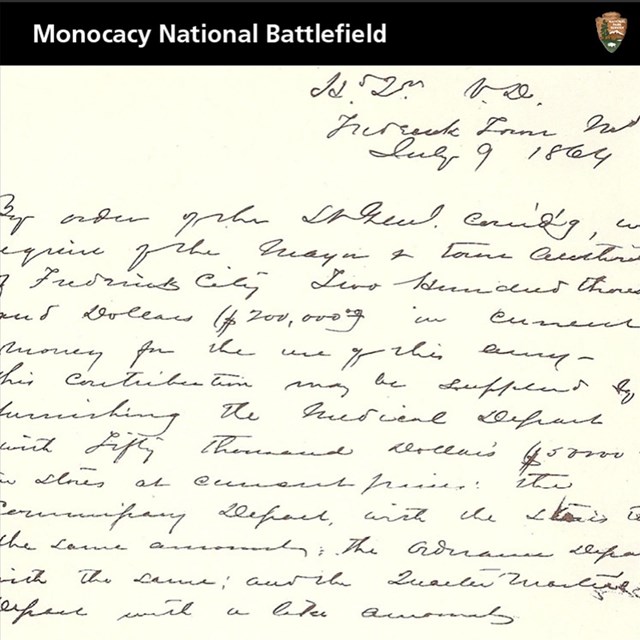 Monocacy National Battlefield
Hd Qrs V. D.
Frederick Town Md
July 9 1864
By order of the Lt Genl. Com'd'g, w
equire of the Mayor & town Authori
f Frederick City Two Hundred thous
and Dollars ($200,000) in current
money for the use of this army–
his contribution may be supplied by
furnishing the Medical Depart
with Fifty thousand Dollars $50000
in stores at current prices: the
Commissary Depart, with the Stores to
the same amount; the Ordnance Depa
with the same; and the Quarter Master's
Depart with a like amount